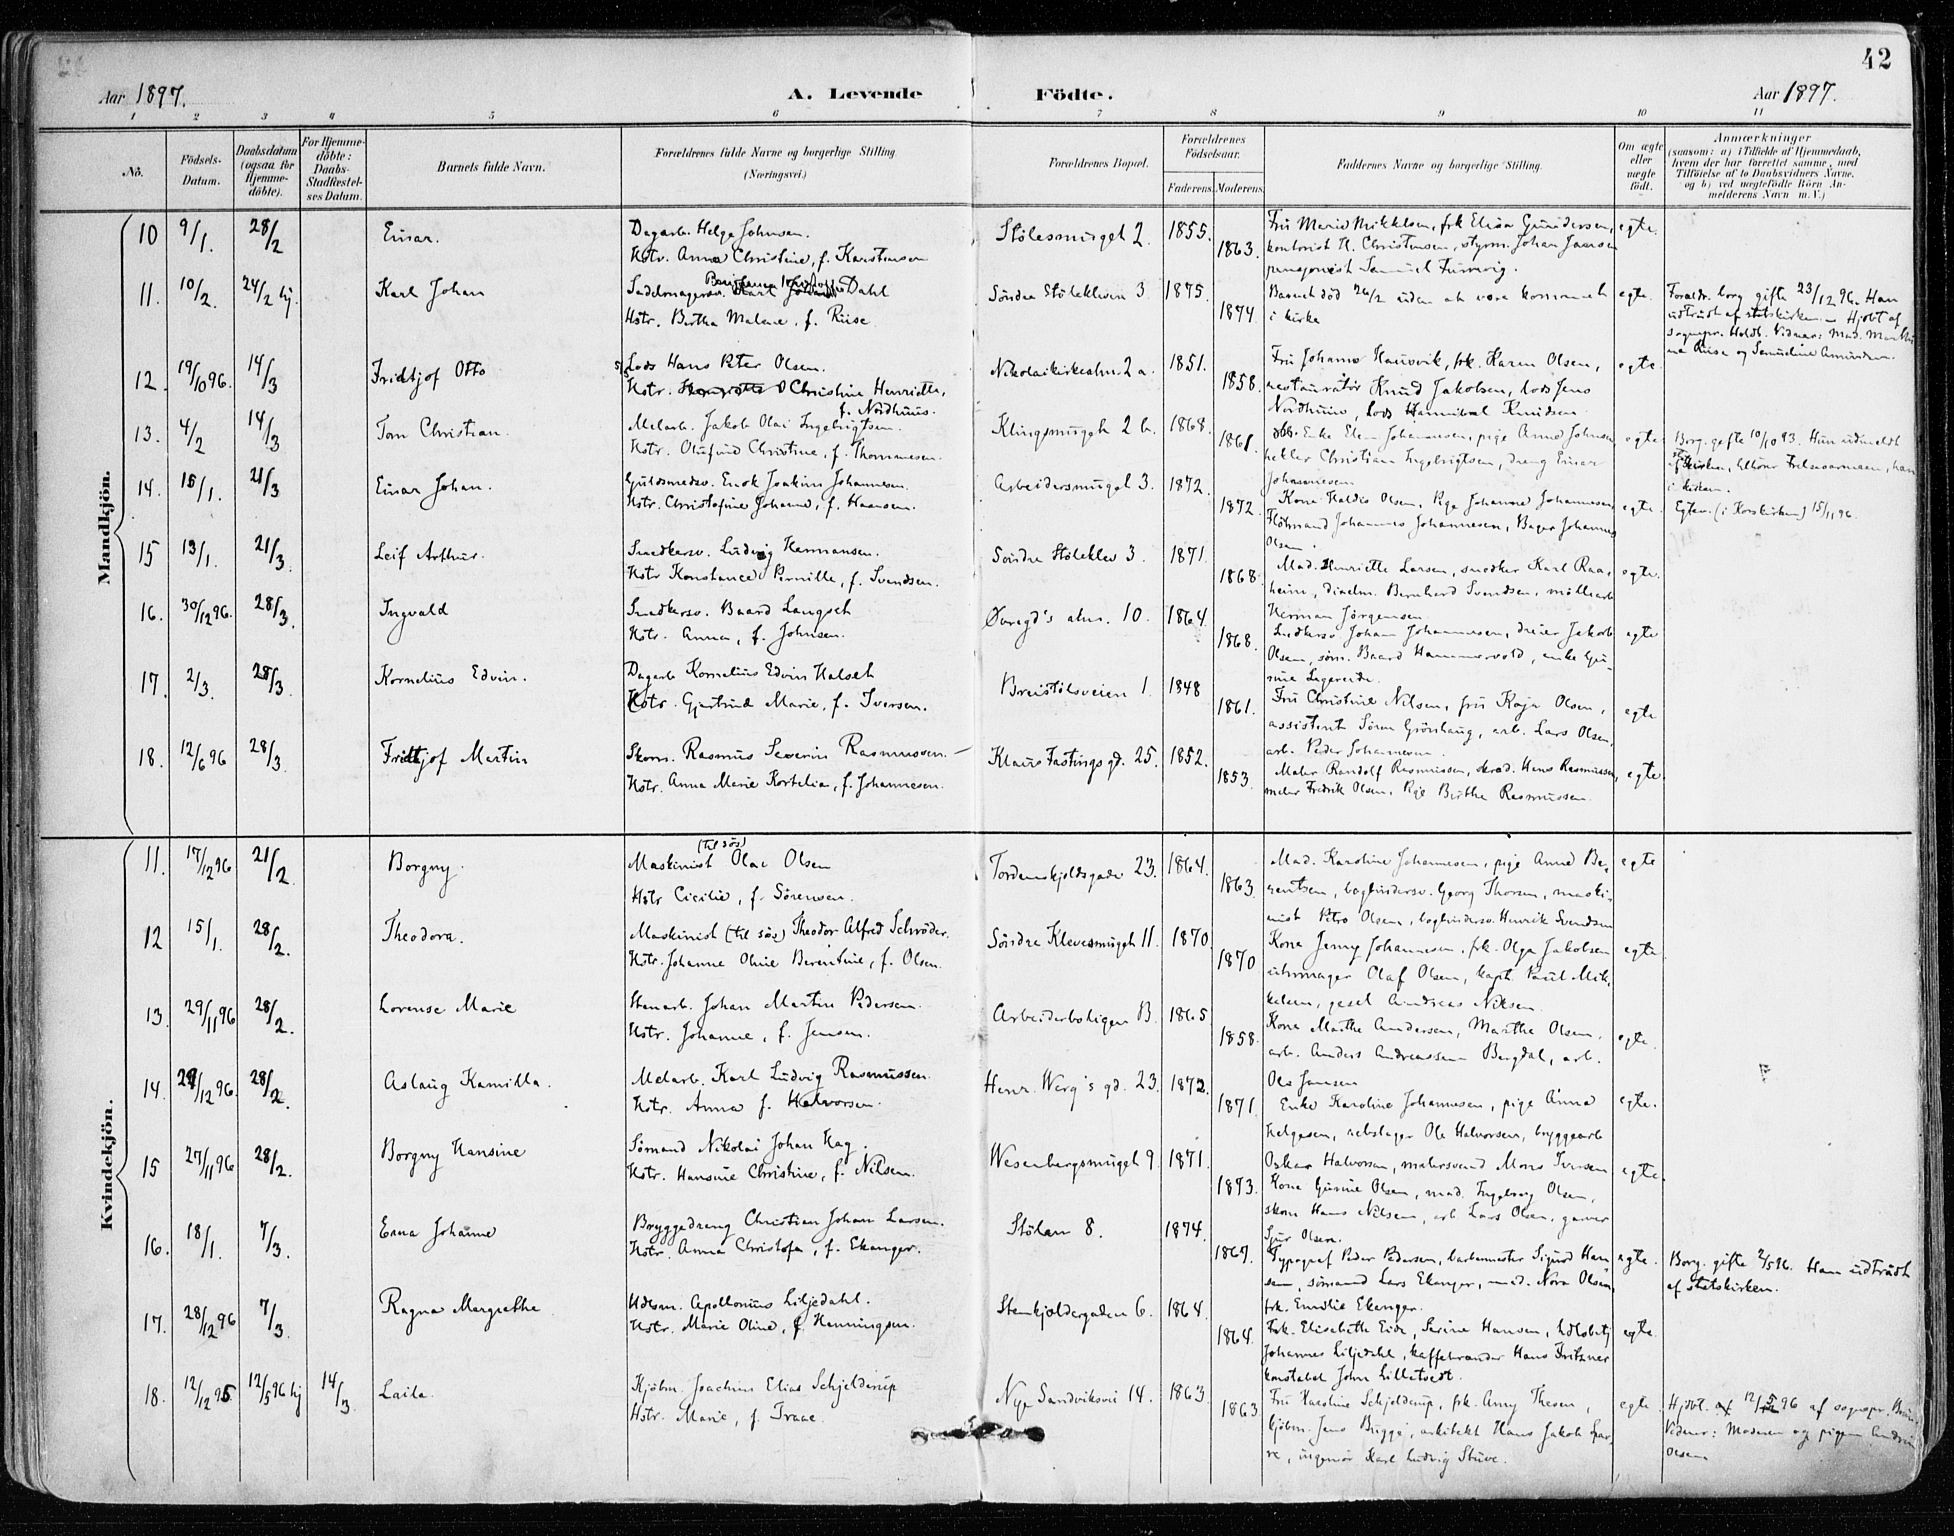 42
Aar 1897.
A. Levende Födte.
Aar 1897.
1 2 3 4 5 6 7 8 9 10 11
No.
Födsels-Datum.
Daabsdatum (ogsaa for Hjemmedöbte).
For Hjemmedöbte: Daabs-Stadfæstelses Datum.
Barnets fulde Navn.
Forældrenes fulde Navne og borgerlige Stilling (Næringsvei.)
Forældrenes Bopæl.
Forældrenes Födselsaar.
Faderens. Moderens.
Faddernes Navne og borgerlige Stilling.
Om ægte eller uægte födt.
Anmærkninger
(saasom: a) i Tilfælde af Hjemmedaab,
hvem der har forrettet samme, med
Tilföielse af to Daabsvidners Navne.
og b) ved uægtefödte Börn Anmelderens Navn m. V.)
Mandkjön.
10 9/1. 28/2 Einar. Dagarb. Helge Johnsen. Stølesmuget 2. 1855. Fru Marie Mikkelsen, frk Elisa Gundersen, egte.
Hstr. Anna Christine, f. Karstensen 1863. kontorist H. Christensen, styrm. Johan Jansen
pensjonist Samuel Furevig.
11. 10/2. 24/2 hj. Karl Johan Sadelmagersv. Dahl Söndre Stölekleven 3 1875. Barnet död 26/2 uden at være kommet egte. Foraldr. borg. gifte 23/12 96. Han
Hstr. Bertha Malene, f. Riise. 1874. i kirke udtrådt af statskirken. Hjdbt af
sognepr. Holdt. Vidner: Mad. Martina Riise og Amundsen.
12. 19/10 96. 14/3 Fridtjof Otto Lods Hans Peter Olsen. Nikolaikirkealm. 2a. 1851. Fru Johanne Hauvik, frk. Karen Olsen, egte.
Hstr. Christine Henriette, f. Nordhuus. 1858. restauratör Knud Jakobsen, lods Jens
Nordhuus, Lods Hannibal Knudsen.
13. 4/2 14/3 Tom Christian. Melarb. Jakob Olai Ingebrigtsen. Klingsmuget 2 b. 1868. Enke Elen Johannesen, pige Anna Johnsen egte.
Hstr. Olufine Christine, f. Thommesen. 1861. Christian Ingebrigtsen, dreng Einar
Johannesen
Borg. gifte 10/10 93. Hun udmeldt
af kirken, tilhörer Frelsesarmeen, han
i kirken.
14. 15/1. 21/3 Einar Johan. Guldsmedsv. Enok Joakim Johannesen. Arbeidersmuget 3. 1872. Kona Haldis Olsen, Pige Johanne Johannesen egte. Egtev. (i Korskirken) 15/11 96.
Hstr. Christofine Johanne, f. Haansen. 1872. Johannes Johannesen, Bager Johannes
Olsen.
15 13/1. 21/3. Leif Arthur. Snedkersv. Ludvig Hermansen. Söndre Stöleklev 3. 1871. Mad. Henriette Larsen, snedker Karl Raa- egte.
Hstr Konstance Pernille, f. Svendsen. 1868. heim, Bernhard Svendsen, möllearb
Herman Jörgensen.
16. 30/12 96. 28/3. Ingvald Snedkersv. Baard Langseth Øvregd's alm. 10. 1864. Snedkersv Johan Johannesen, dreier Jakob egte
Hstr. Anna, f. Johnsen. 1868. Olsen, söm. Baard Hammersvold, enke Gu-
17. 2/3. 28/3. Kornelius Edvin. Dagarb. Kornelius Edvin Halset Breistölsveien 1. 1848 Fru Christine Nilsen, fru Kaja Olsen, egte
Hstr. Gjertrud Marie, f. Iversen. 1861. assistent Sören Grönhaug, arb. Lars Olsen,
arb. Peder Johannesen.
18. 12/6 96 28/3. Fridtjof Martin Skom. Rasmus Severin Rasmussen. Klaus Fastings gd. 25. 1852. Maler Randolf Rasmussen, skræd. Hans Rasmussen, egte.
Hstr. Anna Marie Kortelia, f. Johannesen. 1853. maler Fredrik Olsen, Pige Birthe Rasmussen.
Kvindekjön.
11. 17/12 96 21/2. Borgny. Maskinist (til sös) Olai Olsen Tordenskjoldsgade 23. 1864. Mad. Karoline Johannesen, pige Anna Be- egte
Hstr Cicilie, f. Sörensen. 1863. rentsen, bogbindersv. Georg Thorsen, maski-
nist Petro Olsen, bogbindersv. Henrik Svendsen
12 15/1. 28/2. Theodora. Maskinist (til sös) Theodor Alfred Schröder. Söndre Klevesmuget 11. 1870. Kona Jenny Johannesen, frk. Olga Jakobsen egte.
Hstr. Johanne Oline Berentine, f. Olsen. 1870 uhrmager Olaf Olsen, kapt. Paul Mik-
kelsen, gesel Andreas Nilsen
13. 29/11 96 28/2. Lovense Marie Stenarb. Johan Martin Pedersen. Arbeiderboligen B. 1865 Kona Marthe Andersen, Marthe Olsen, egte.
Hstr. Johanne, f. Jensen. 1858. arb. Anders Andreassen Bergdal, arb.
Ole Jansen
14. 29/12 96. 28/2. Aslaug Kamilla. Melarb. Karl Ludvig Rasmussen. Henr. Werg's gd. 23. 1872. Enke Karoline Johannesen, pige Anna egte.
Hstr. Anna f. Halvorsen. 1871. Helgesen, rebslager Ole Halvorsen, bryggearb
Oskar Halvorsen, malersvend Mons Iversen
15 27/11 96 28/2. Borgny Hansine Sömand Nikolai Johan Hag. Wesenbergsmuget 9. 1871. egte.
Hstr. Hansine Christine, f. Nilsen. 1873. Kona Gurine Olsen, mad. Ingeborg Olsen,
skom Hans Nilsen, arb Lars Olsen, garver
Sjur Olsen.
16. 18/1. 7/3. Enna Johanne Bryggedreng Christian Johan Larsen. Stölen 8. 1874. Typograf Peder Pedersen, barbermester Sigurd Han- egte. Borg. gifte 2/5 96. Han udtrådt
Hstr. Anna Christofa, f. Ekanger. 1867. sen, sömand Lars Ekanger, mad. Nora Olsen, af statskirken.
frk. Emilie Ekanger.
17. 28/12 96 7/3. Ragna Margrethe Udsm. Apollonius Liljedahl. Stenkjeldergaden 6. 1864. Frk. Elisabeth Eide, Serine Hansen, egte.
Hstr. Marie Oline, f. Henningsen. 1864. Johannes Liljedahl, kaffebrænder Hans Fritzner
konstabel John Lilletvedt.
18. 12/12 95 12/5 96 hj 14/3. Laila. Kjöbm. Joachim Elias Schjelderup Nye Sandviksvei 14. 1863. Fru Karoline Schjelderup, frk. Anny Thesen, egte. Hjdbt. 12/5 96 af sognepr.
Hstr. Marie, f. Traae. 1863 kjöbm. Jens Brigge, arkitekt Hans Jakob Spar- Vidner: Moderen og pigen
re, ingeniör Karl Ludvig Stuve. Olsen